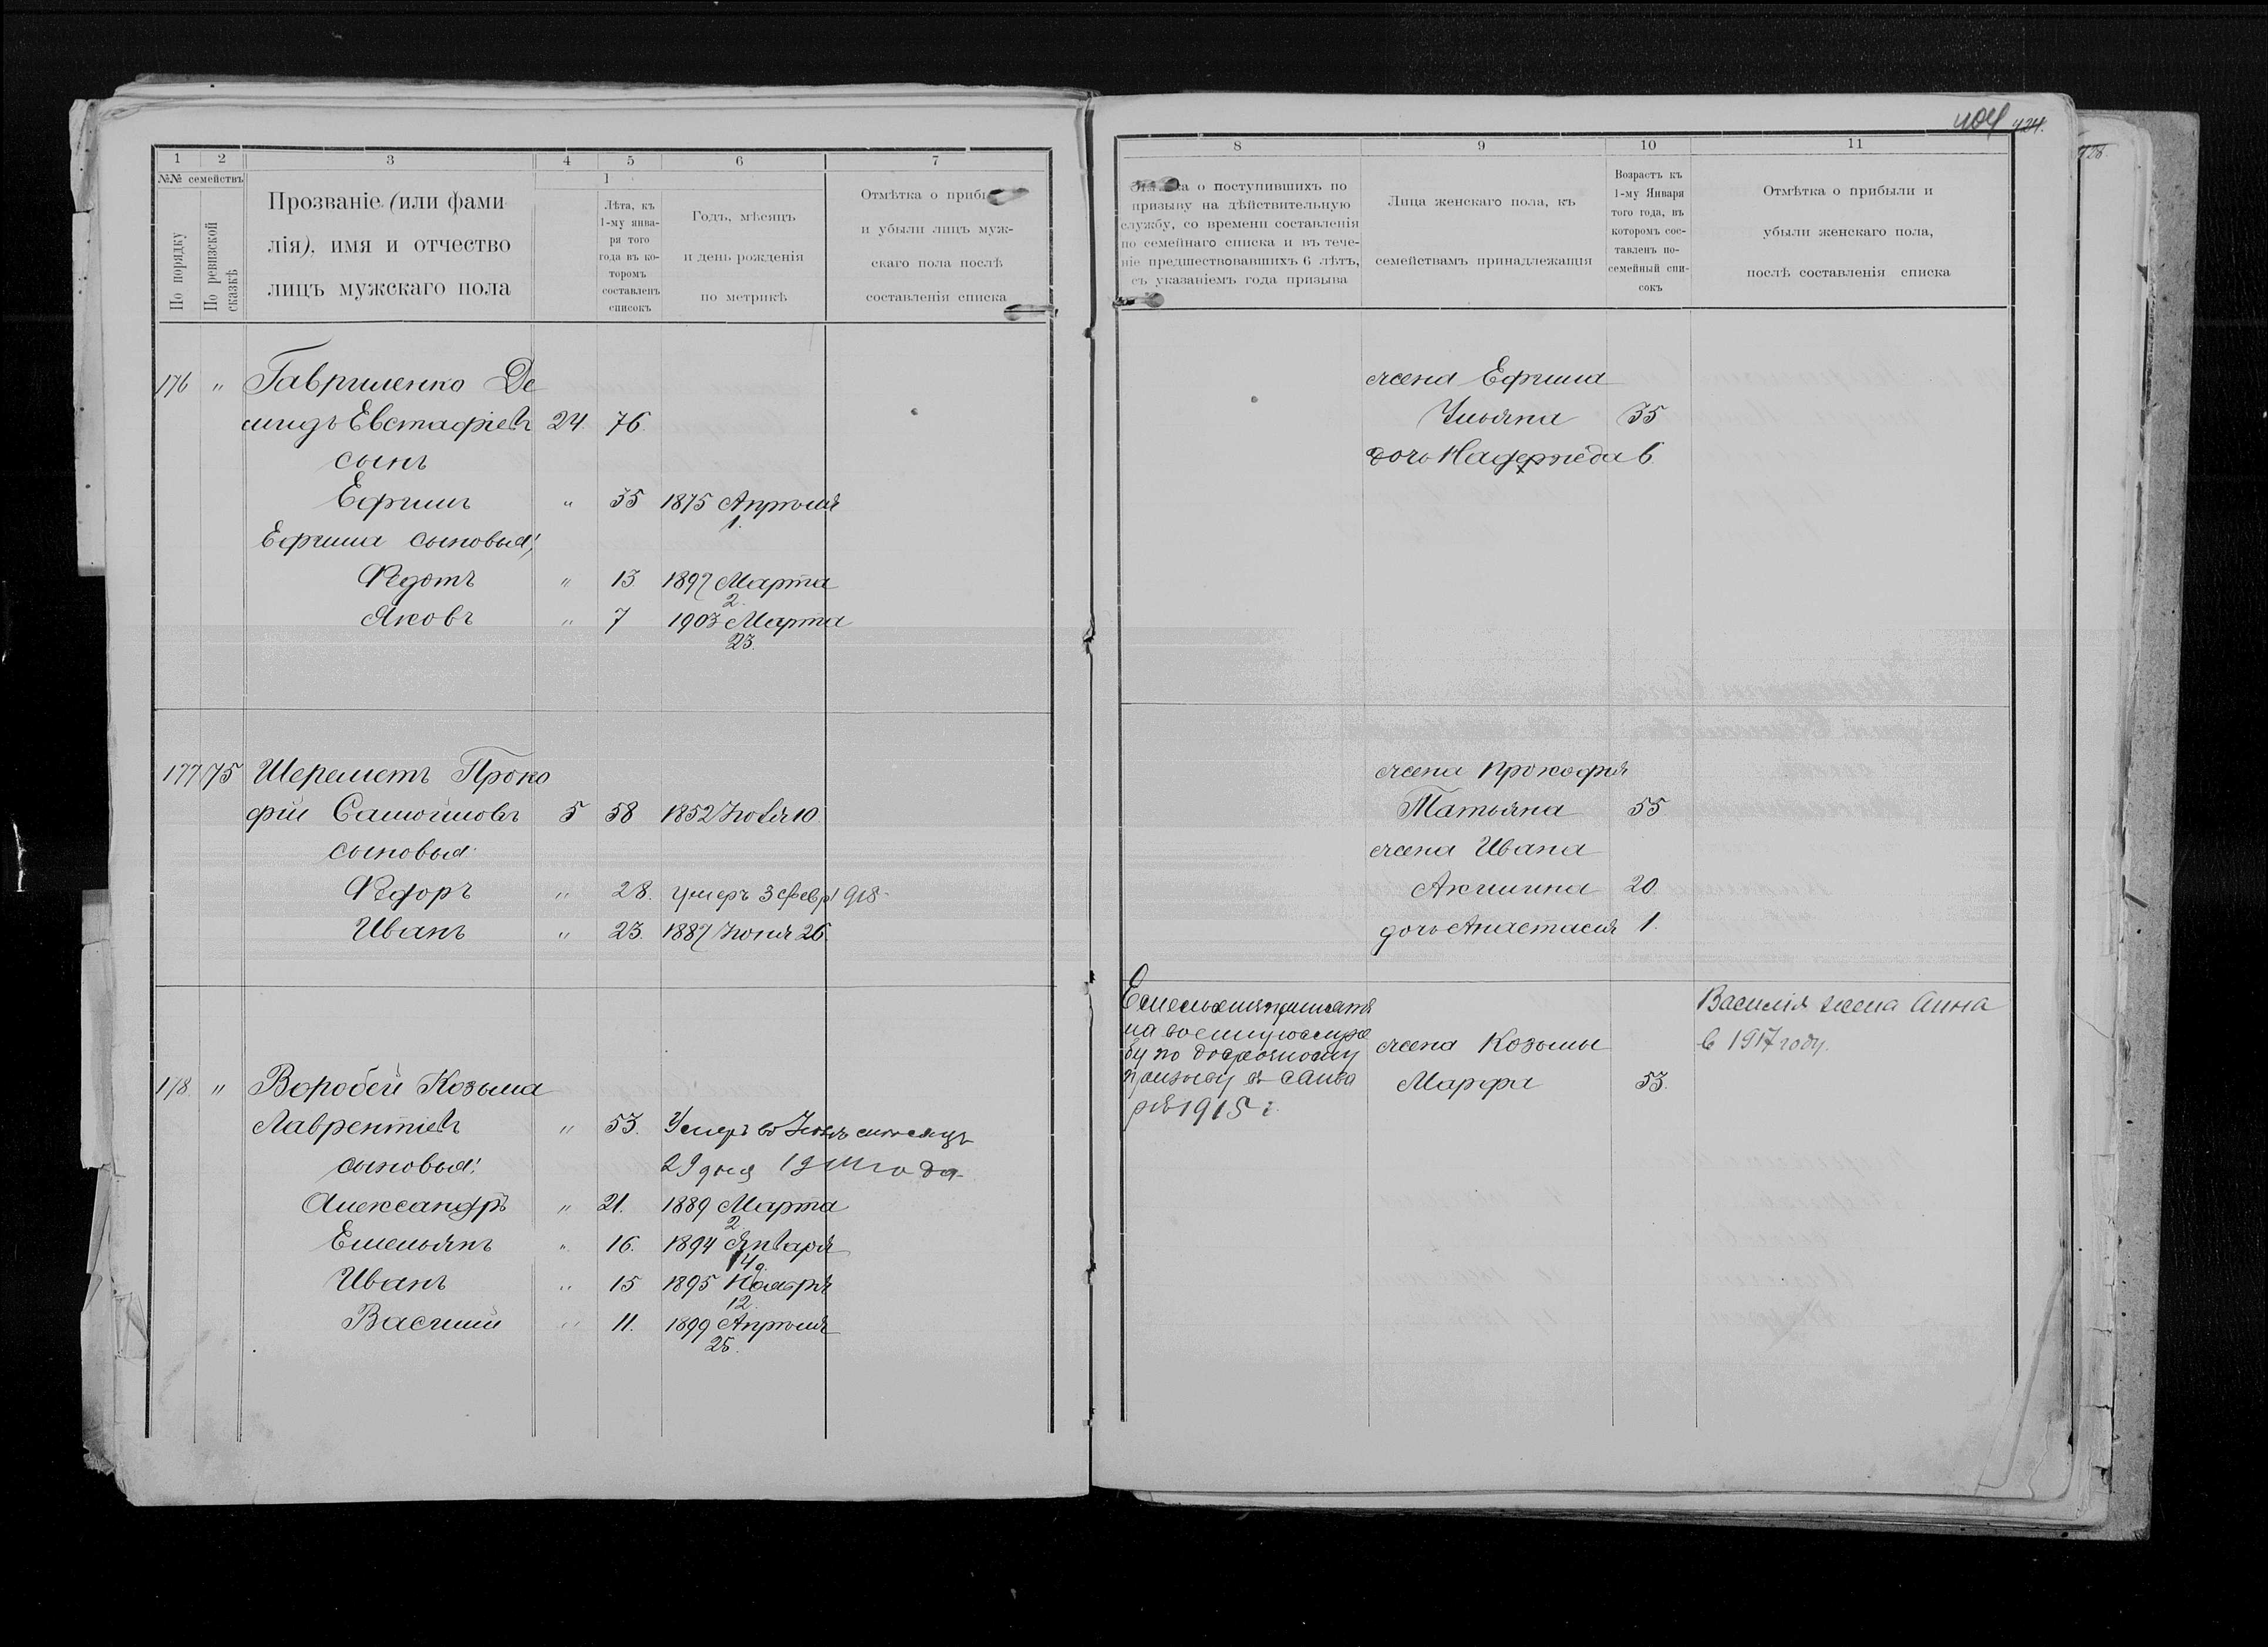 404 424.
1 2 3 4 5 6 7
№№ семействъ
По порядку
По ревизской сказкѣ
Прозваніе (или фами
лія), имя и отчество
лицъ мужскаго пола
1
Лѣта, къ
1-му янва-
ря того
года въ ко-
торомъ
составленъ
списокъ
Годъ, мѣсяцъ
и день рожденія
по метрикѣ
Отмѣтка о прибы
и убыли лицъ муж-
скаго пола послѣ
составленія списка
176 " Гавриленко Де
мидъ Евстафіев 24. 76.
сынъ
Ефимъ " 35 1875 Апрѣля
1.
Ефима сыновья:
Федотъ " 13 1897 Марта
2.
Яковъ " 7 1903 Марта
23.
177 75 Шереметъ Проко
фій Самойловъ 5 58 1852 Іюля 10.
сыновья
Федоръ " 28. умеръ 3 февр 1918
Иванъ " 23. 1887 Іюня 26.
178 " Воробей Козьма
Лаврентіев " 53. Умеръ въ мѣсяцъ
сыновья: 29 дня года
Александръ " 21. 1889 Марта
2.
Емельянъ " 16. 1894 Января
14
Иванъ " 15 1895 Ноября
12.
Василій " 11. 1899 Апрѣля
25.
8 9 10 11
ка о поступившихъ по
призыву на дѣйствительную
службу, со времени составленія
по семейнаго списка и въ тече-
ніе предшествовавшихъ 6 лѣтъ,
съ указаніемъ года призыва
Лица женскаго пола, къ
семействамъ принадлежащія
Возрастъ къ
1-му Января
того года, въ
которомъ сос-
тавленъ по-
семейный спи-
сокъ
Отмѣтка о прибыли и
убыли женскаго пола,
послѣ составленія списка
жена Ефима
Ульяна 35
дочь Надежда 6.
жена Прокофія
Татьяна 55
жена Ивана
Акилина 20.
дочь Анастасія 1.
Емельянъ принятъ
на военную служ
бу по досрочному
призыву в Янва
ря 1915 г.
жена Козьмы
Марфа 53.
Василія жена Анна
в 1917 году.